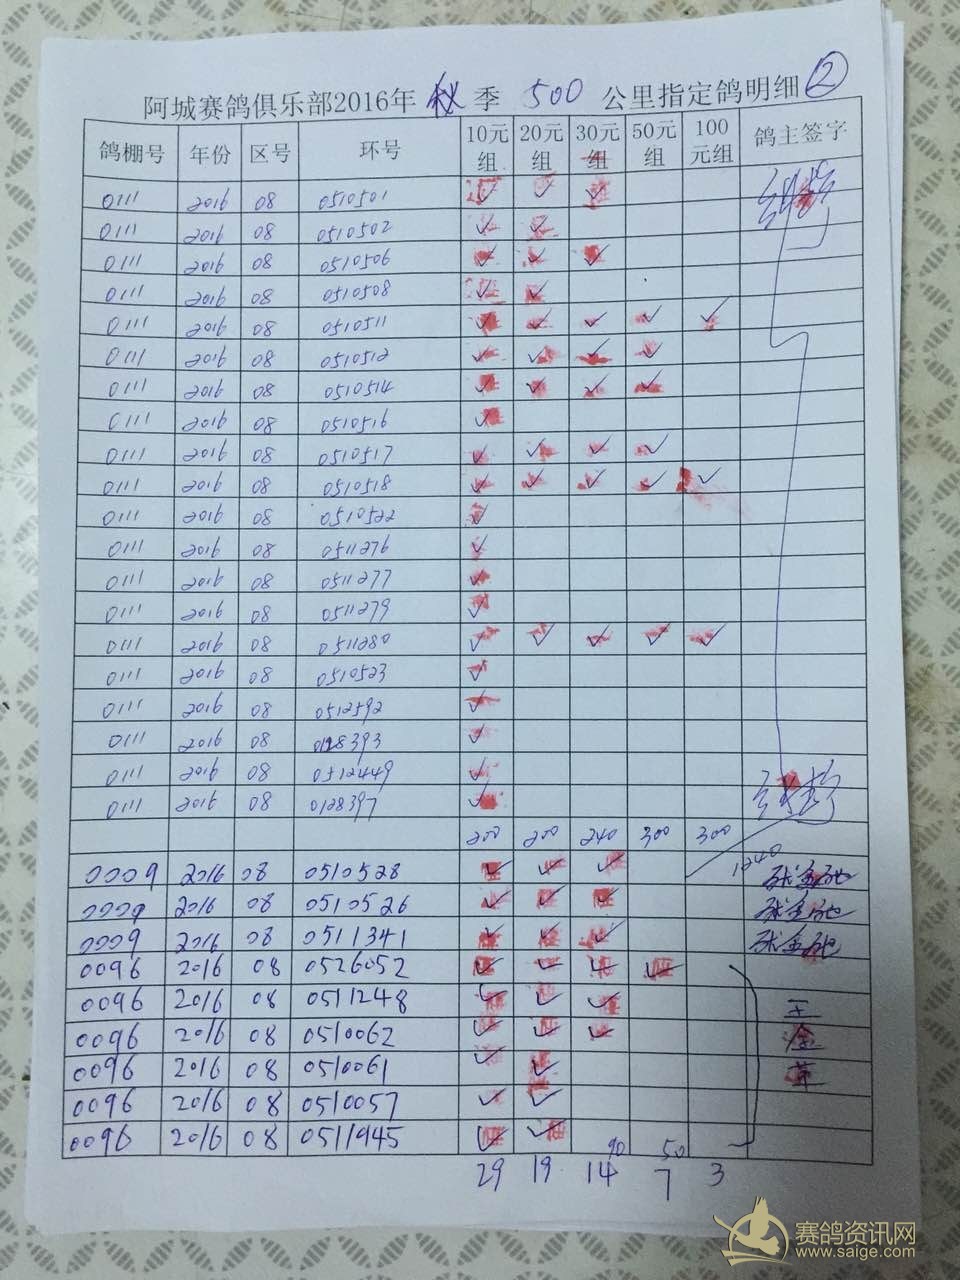 阿城赛鸽俱乐部2016年 秋 季 500 公里指定鸽明细 ②
鸽棚号 年份 区号 环号 10元组 20元组 30元组 50元组 100元组 鸽主签字
0111 2016 08 0510501 ✓ ✓ ✓
0111 2016 08 0510502 ✓ ✓
0111 2016 08 0510506 ✓ ✓ ✓
0111 2016 08 0510508 ✓ ✓
0111 2016 08 0510511 ✓ ✓ ✓ ✓ ✓
0111 2016 08 0510512 ✓ ✓ ✓ ✓
0111 2016 08 0510514 ✓ ✓ ✓ ✓
0111 2016 08 0510516 ✓
0111 2016 08 0510517 ✓ ✓ ✓ ✓
0111 2016 08 0510518 ✓ ✓ ✓ ✓ ✓
0111 2016 08 0510522 ✓
0111 2016 08 0511276 ✓
0111 2016 08 0511277 ✓
0111 2016 08 0511279 ✓
0111 2016 08 0511280 ✓ ✓ ✓ ✓ ✓
0111 2016 08 0510523 ✓
0111 2016 08 0512592 ✓
0111 2016 08 0128393 ✓
0111 2016 08 0512449 ✓
0111 2016 08 0128397 ✓
200 200 240 300 300 1240
0009 2016 08 0510528 ✓ ✓ ✓
0009 2016 08 0510526 ✓ ✓ ✓
0009 2016 08 0511341 ✓ ✓ ✓
0096 2016 08 0526052 ✓ ✓ ✓ ✓
0096 2016 08 0511248 ✓ ✓ ✓ 王
0096 2016 08 0510062 ✓ ✓ ✓ 金
0096 2016 08 0510061 ✓ ✓
0096 2016 08 0510057 ✓ ✓
0096 2016 08 0511945 ✓ ✓
90 50
29 19 14 7 3
赛鸽资讯网
www.saige.com